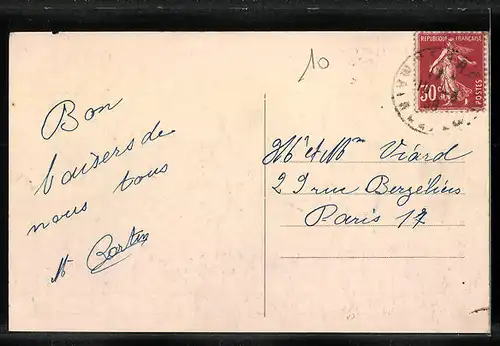 10
REPUBLIQUE FRANÇAISE
30c
POSTES
Bon
baisers de
nous tous
Mr et Mme Viard
29 rue Berzélius
Paris 17